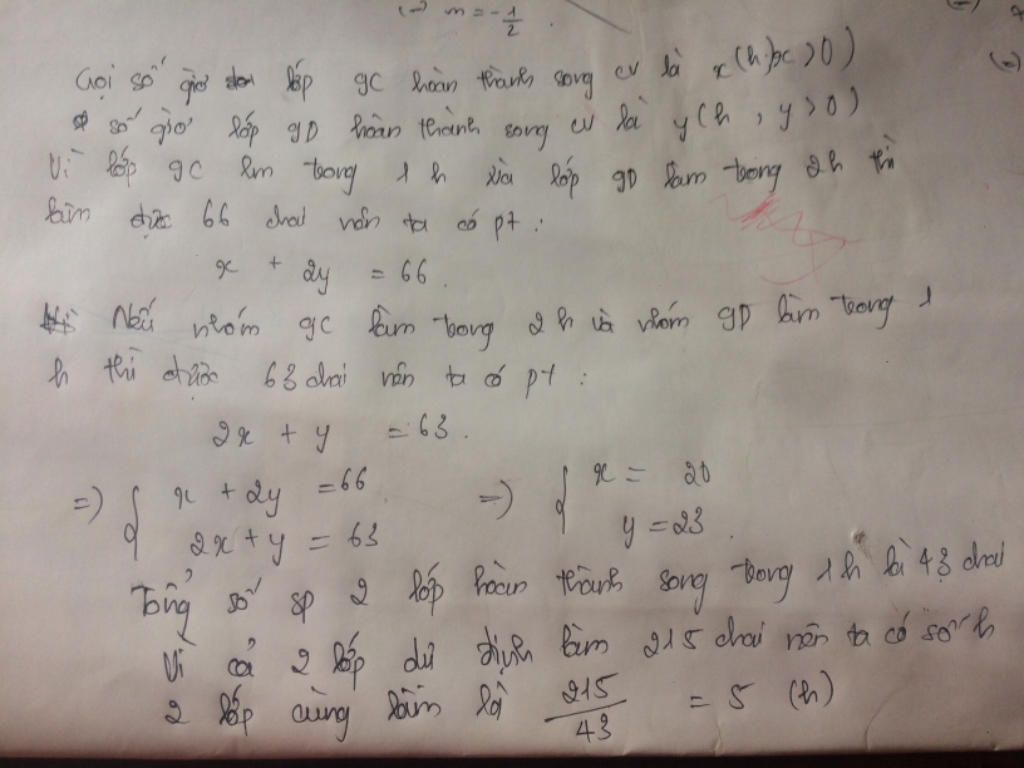 (=) m = -1/2 .
Gọi số giờ lớp 9C hoàn thành song cv là x (h, x > 0)
số giờ lớp 9D hoàn thành song cv là y (h, y > 0)
Vì lớp 9C làm trong 1 h và lớp 9D làm trong 2h thì
làm được 66 chai nên ta có pt :
x + 2y = 66.
Nếu nhóm 9C làm trong 2 h và nhóm 9D làm trong 1
h thì được 63 chai nên ta có pt :
2x + y = 63.
=) { x + 2y = 66 =) { x = 20
2x + y = 63 y = 23.
Tổng số sp 2 lớp hoàn thành song trong 1h là 43 chai
Vì cả 2 lớp dự định làm 215 chai nên ta có số h
2 lớp cùng làm là 215/43 = 5 (h)